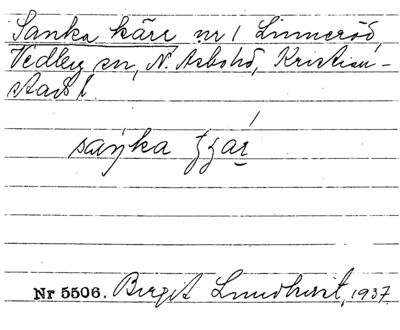 Sanka kärr nr 1 Linneröd,
Vedby sn, N. Åsbohd, Kristian-
stads l.
saŋka
Nr 5506. Birgit Lundkvist, 1937